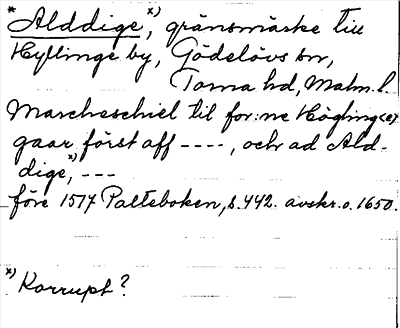 * Alddige, x) gränsmärke till
Hyllinge by, Gödelövs sn,
Torna hd, Malm. l.
Marcheschiel til for:ne Högling(e)
gaar först aff ----, och ad Ald-
dige, x) ---
före 1517 Palteboken, s. 442. avskr. o. 1650.
x) Korrupt?